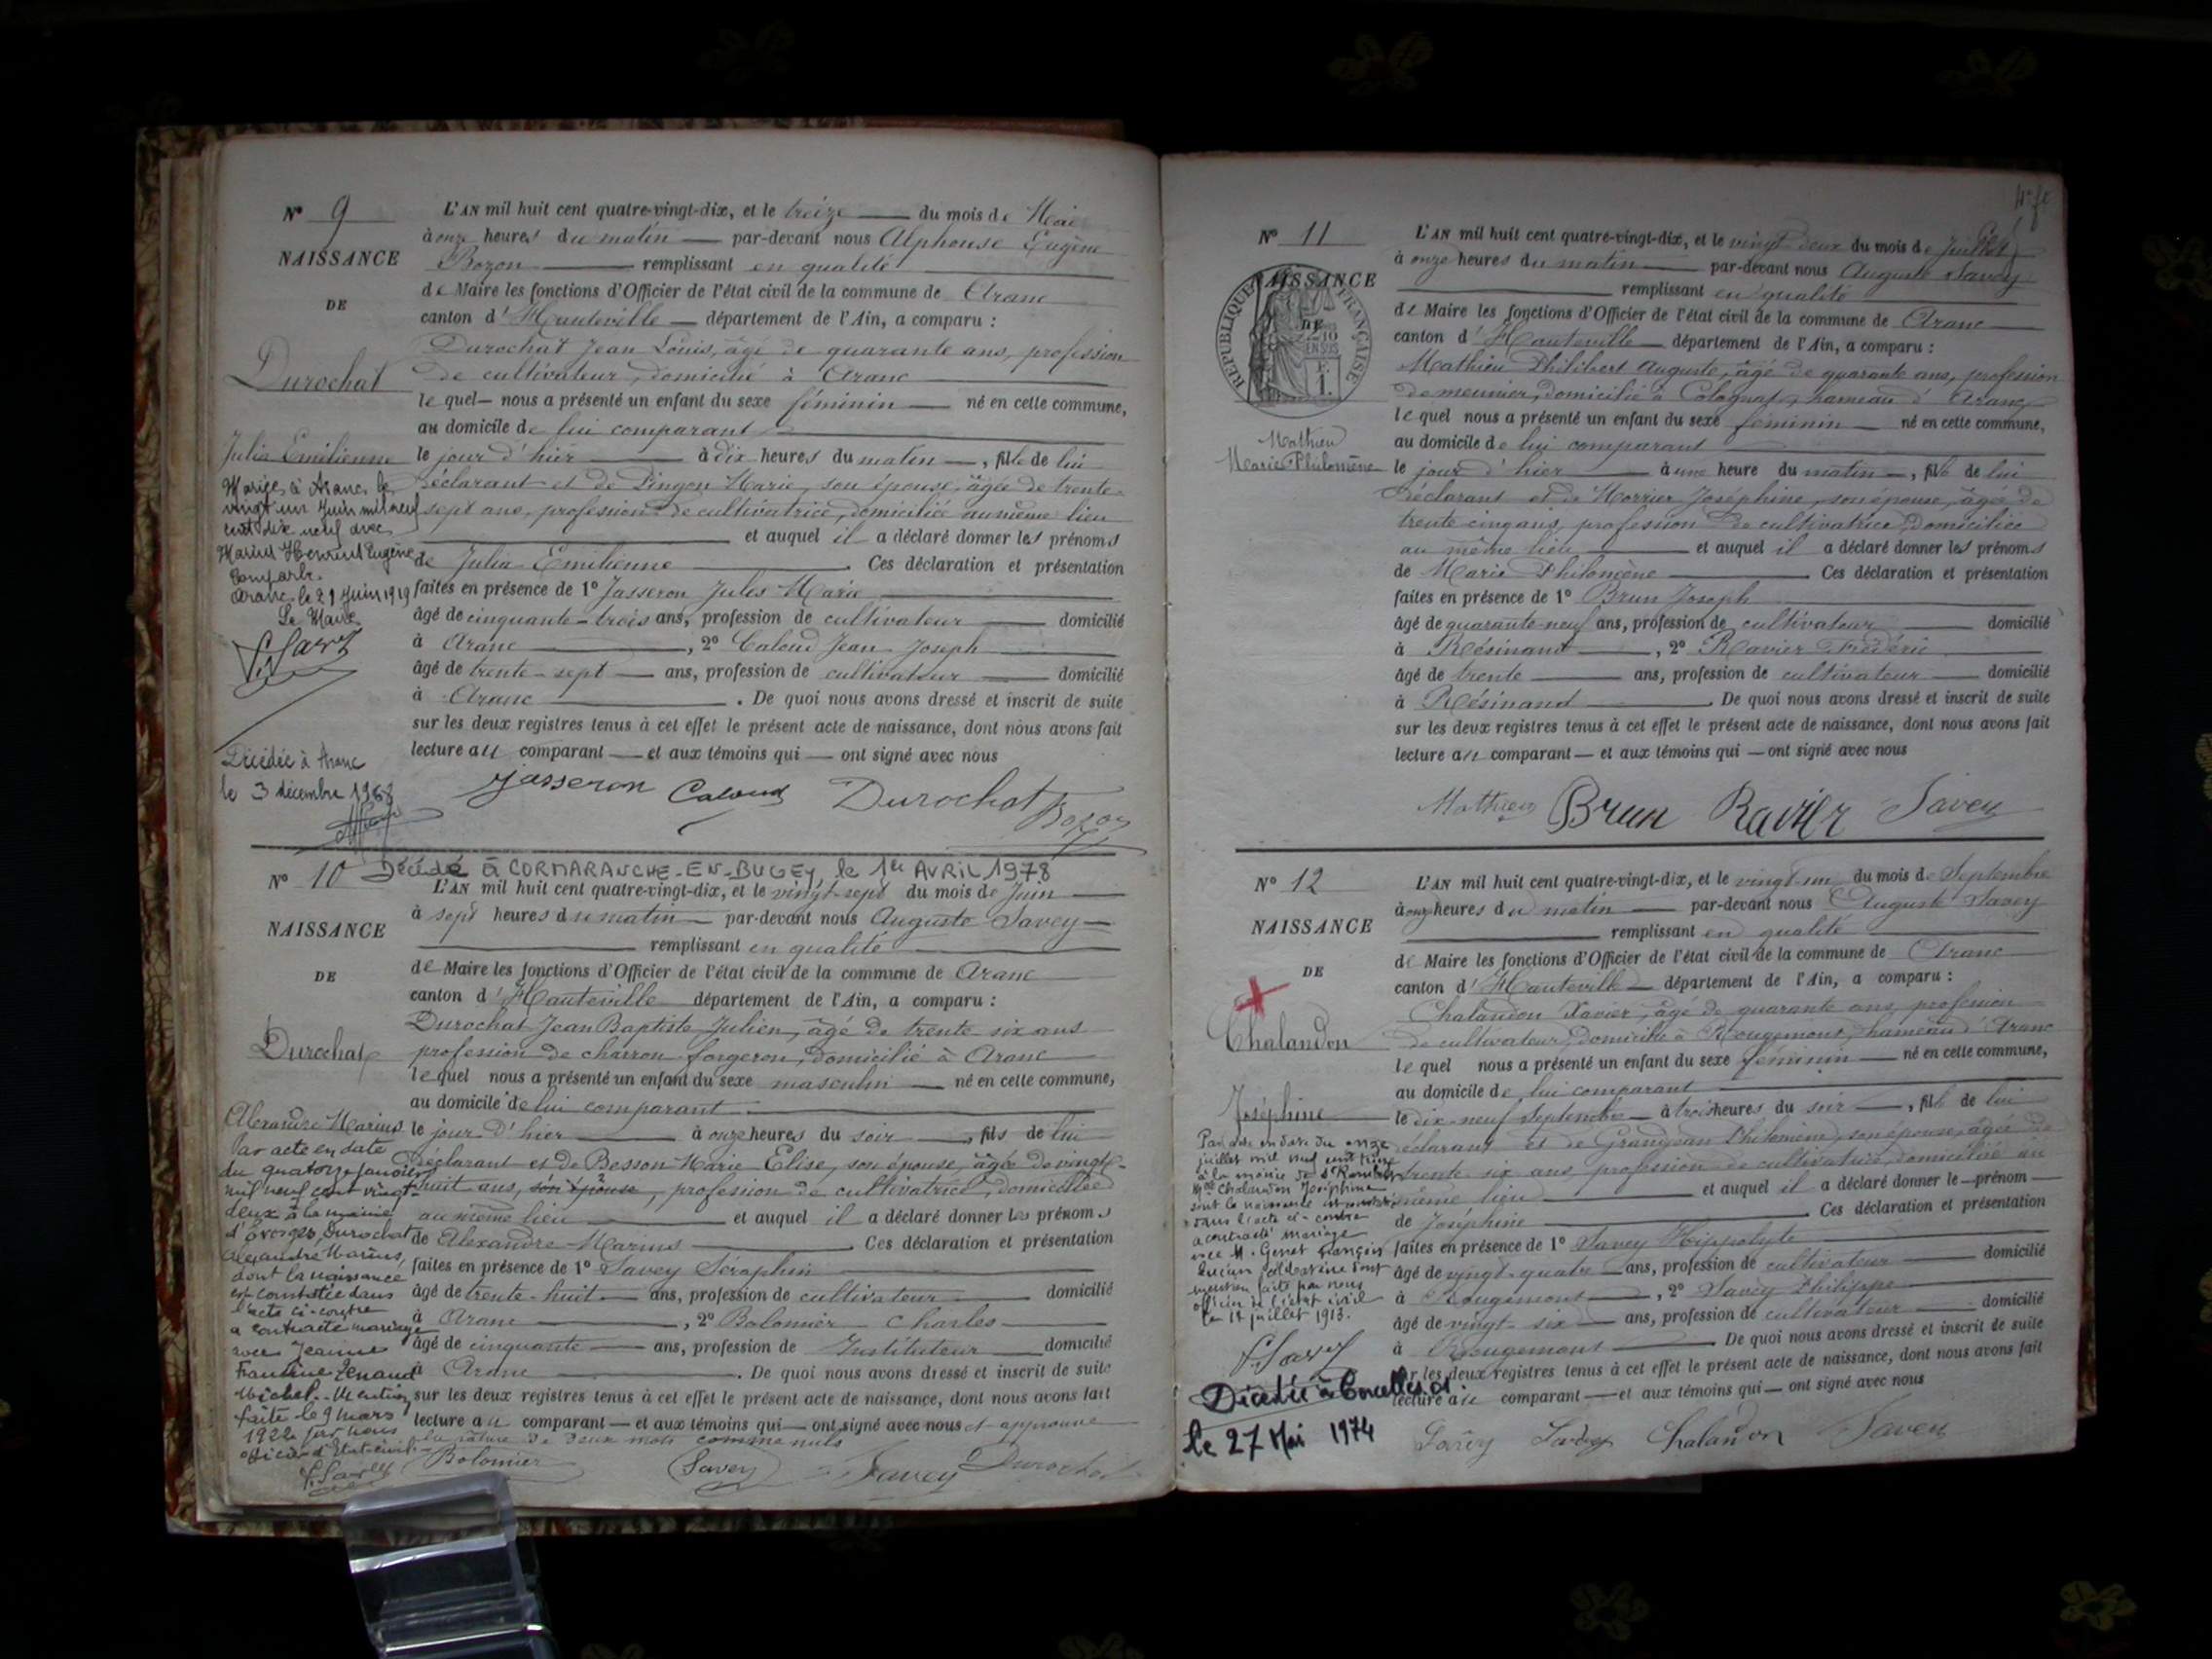 N° 9
NAISSANCE
DE
Durochat
Julia Emilienne
Mariée à Aranc le
vingt un Juin mil neuf
cent dix neuf avec
Marius Henri Eugène
Aranc, le 21 Juin 1919
Le Maire
Décédée à Aranc
le 3 décembre 1968
L'AN mil huit cent quatre-vingt-dix, et le treize du mois de Mai
à onze heures du matin par-devant nous Alphonse Eugène
Bozon remplissant en qualité
de Maire les fonctions d'Officier de l'état civil de la commune de Aranc
canton d'Hauteville département de l'Ain, a comparu :
Durochat Jean Louis, âgé de quarante ans, profession
de cultivateur, domicilié à Aranc
lequel nous a présenté un enfant du sexe féminin né en cette commune,
au domicile de lui comparant
le jour d'hier à dix heures du matin, fille de lui
déclarant et de Pingon Marie, son épouse, âgée de trente-
sept ans, profession de cultivatrice, domiciliée au même lieu
et auquel il a déclaré donner les prénoms
de Julia Emilienne. Ces déclaration et présentation
faites en présence de 1° Jasseron Jules Marie
âgé de cinquante-trois ans, profession de cultivateur domicilié
à Aranc, 2° Caloud Jean Joseph
âgé de trente-sept ans, profession de cultivateur domicilié
à Aranc. De quoi nous avons dressé et inscrit de suite
sur les deux registres tenus à cet effet le présent acte de naissance, dont nous avons fait
lecture au comparant et aux témoins qui ont signé avec nous
Jasseron Caloud Durochat Bozon
Décédé à CORMARANCHE-EN-BUGEY le 1er AVRIL 1978
N° 10
NAISSANCE
DE
Durochat
Alexandre Marius
Par acte en date
du quatorze janvier
mil neuf cent vingt-
deux à la mairie
d'Evosges, Durochat
Alexandre Marius,
dont la naissance
est constatée dans
l'acte ci-contre
a contracté mariage
avec Jeanne
Fantine Zénaud
Michel. Mention
faite le 9 mars
1922 par nous
officier d'Etat-civil
L'AN mil huit cent quatre-vingt-dix, et le vingt-sept du mois de Juin
à sept heures du matin par-devant nous Auguste Savey
remplissant en qualité
de Maire les fonctions d'Officier de l'état civil de la commune de Aranc
canton d'Hauteville département de l'Ain, a comparu :
Durochat Jean Baptiste Julien, âgé de trente six ans
profession de charron forgeron, domicilié à Aranc
lequel nous a présenté un enfant du sexe masculin né en cette commune,
au domicile de lui comparant
le jour d'hier à onze heures du soir, fils de lui
déclarant et de Besson Marie Elise, son épouse, âgée de vingt-
huit ans, son épouse, profession de cultivatrice, domiciliée
au même lieu et auquel il a déclaré donner les prénoms
de Alexandre Marius Ces déclaration et présentation
faites en présence de 1° Savey Séraphin
âgé de trente-huit ans, profession de cultivateur domicilié
à Aranc, 2° Bolomier Charles
âgé de cinquante ans, profession de Instituteur domicilié
à Aranc. De quoi nous avons dressé et inscrit de suite
sur les deux registres tenus à cet effet le présent acte de naissance, dont nous avons fait
lecture au comparant et aux témoins qui ont signé avec nous et approuvé
la rature de deux mots comme nuls
Bolomier Savey Savey Durochat
N° 11
NAISSANCE
DE
RÉPUBLIQUE FRANÇAISE
Mathieu
Marie Philomène
L'AN mil huit cent quatre-vingt-dix, et le vingt deux du mois de Juillet
à onze heures du matin par-devant nous Auguste Savey
remplissant en qualité
de Maire les fonctions d'Officier de l'état civil de la commune de Aranc
canton d'Hauteville département de l'Ain, a comparu :
Mathieu Philibert Auguste, âgé de quarante ans, profession
de meunier, domicilié à Colognat, hameau d'Aranc
lequel nous a présenté un enfant du sexe féminin né en cette commune,
au domicile de lui comparant
le jour d'hier à une heure du matin, fille de lui
déclarant et de Morrier Joséphine, son épouse, âgée de
trente-cinq ans, profession de cultivatrice, domiciliée
au même lieu et auquel il a déclaré donner les prénoms
de Marie Philomène. Ces déclaration et présentation
faites en présence de 1° Brun Joseph
âgé de quarante-neuf ans, profession de cultivateur domicilié
à Résinand, 2° Ravier Frédéric
âgé de trente ans, profession de cultivateur domicilié
à Résinand. De quoi nous avons dressé et inscrit de suite
sur les deux registres tenus à cet effet le présent acte de naissance, dont nous avons fait
lecture au comparant et aux témoins qui ont signé avec nous
Mathieu Brun Ravier Savey
N° 12
NAISSANCE
DE
Chalandon
Joséphine
Par acte en date du onze
juillet mil neuf cent treize
à la mairie de St Rambert
Mlle Chalandon Joséphine
dont la naissance est
dans l'acte ci-contre
a contracté mariage
avec M. Genet François
Lucien
mention faite par nous
officier de l'état civil
le 14 juillet 1913.
Décédée à
le 27 Mai 1974
L'AN mil huit cent quatre-vingt-dix, et le vingt-un du mois de Septembre
à onze heures du matin par-devant nous Auguste Savey
remplissant en qualité
de Maire les fonctions d'Officier de l'état civil de la commune de Aranc
canton d'Hauteville département de l'Ain, a comparu :
Chalandon Xavier, âgé de quarante ans, profession
de cultivateur, domicilié à Rougemont, hameau d'Aranc
lequel nous a présenté un enfant du sexe féminin né en cette commune,
au domicile de lui comparant
le dix-neuf Septembre à trois heures du soir, fille de lui
déclarant et de Grandjean Philomène, son épouse, âgée de
trente six ans, profession de cultivatrice, domiciliée au
même lieu et auquel il a déclaré donner le prénom
de Joséphine Ces déclaration et présentation
faites en présence de 1° Savey Hippolyte
âgé de vingt-quatre ans, profession de cultivateur domicilié
à Rougemont, 2° Savey Philippe
âgé de vingt-six ans, profession de cultivateur domicilié
à Rougemont. De quoi nous avons dressé et inscrit de suite
sur les deux registres tenus à cet effet le présent acte de naissance, dont nous avons fait
lecture au comparant et aux témoins qui ont signé avec nous
Savey Savey Chalandon Savey